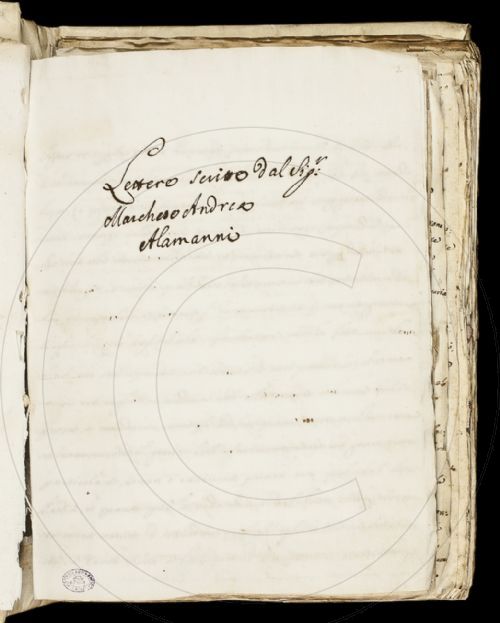 Lettere scritte dal Sig.r
Marchese Andrea
Alamanni